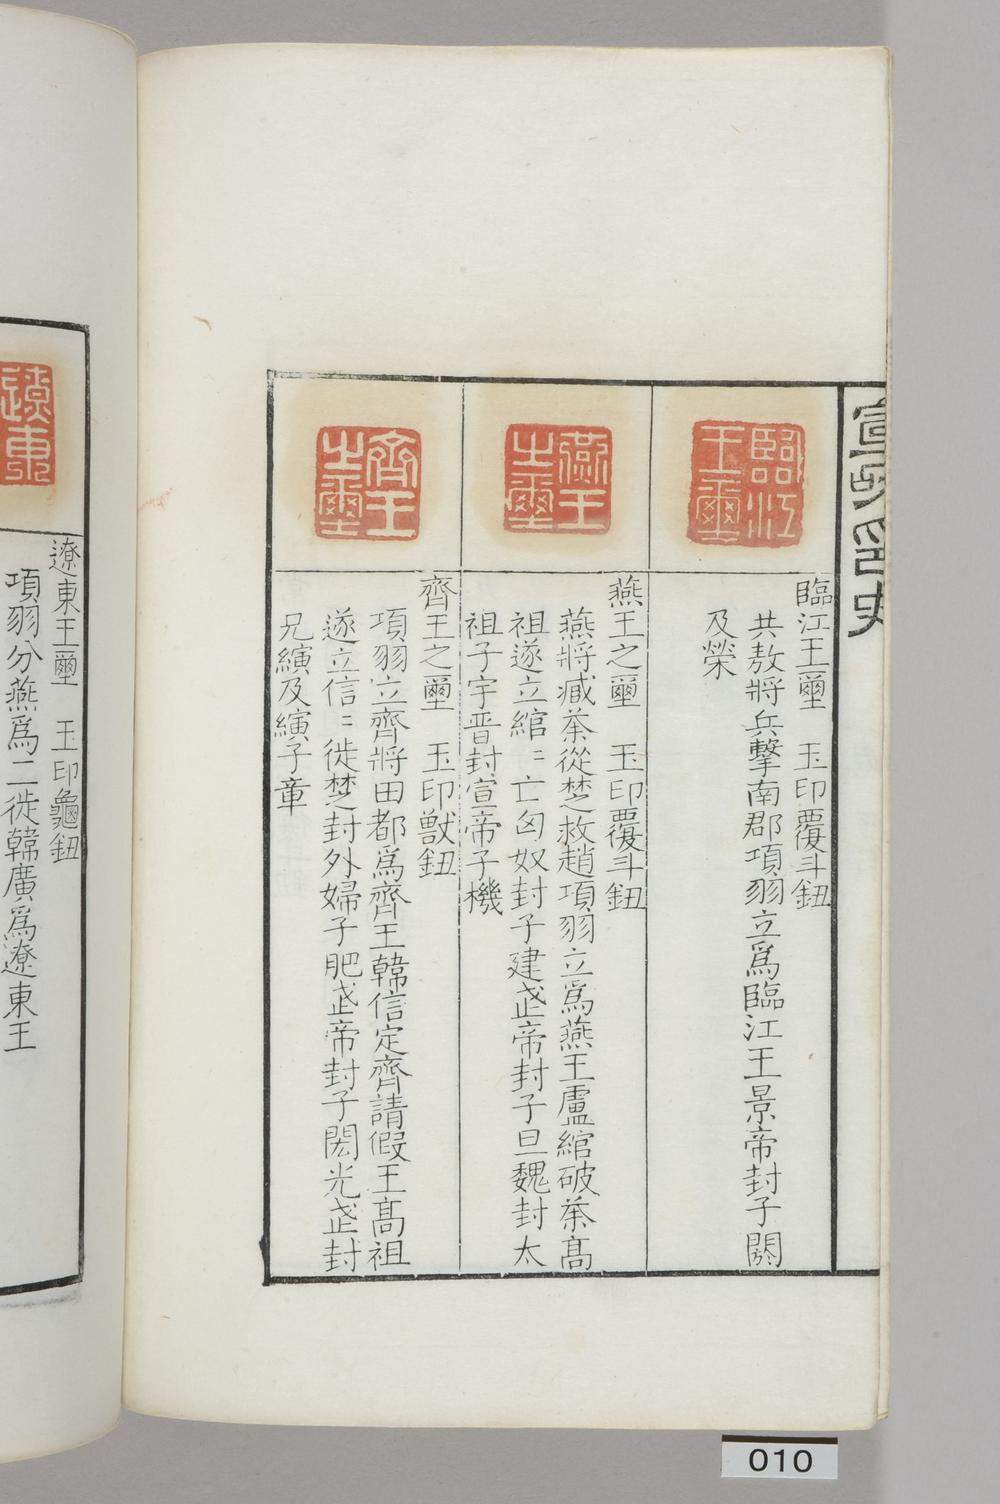 宣和印史
臨江王璽
臨江王壐　玉印覆斗鈕
共敖將兵擊南郡項羽立爲臨江王景帝封子閼
及榮
燕王之璽
燕王之壐　玉印覆斗鈕
燕將臧荼從楚救趙項羽立爲燕王盧綰破荼高
祖遂立綰〻亡匈奴封子建武帝封子旦魏封太
祖子宇晋封宣帝子機
齊王之璽
齊王之壐　玉印獸鈕
項羽立齊將田都爲齊王韓信定齊請假王高祖
遂立信〻徙楚封外婦子肥武帝封子閎光武封
兄縯及縯子章
遼東
遼東王壐　玉印龜鈕
項羽分燕爲二徙韓廣爲遼東王
010